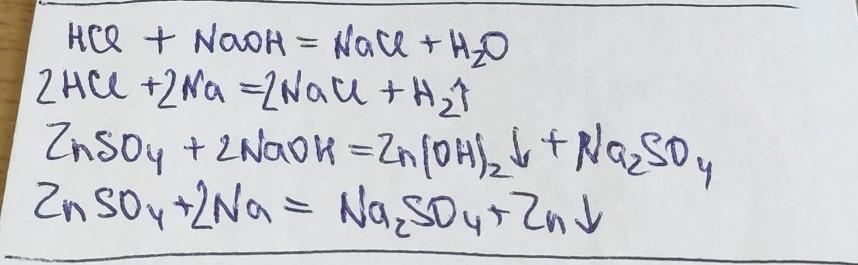 HCl + NaOH = NaCl + H₂O
2HCl + 2Na = 2NaCl + H₂↑
ZnSO₄ + 2NaOH = Zn(OH)₂↓ + Na₂SO₄
ZnSO₄ + 2Na = Na₂SO₄ + Zn↓